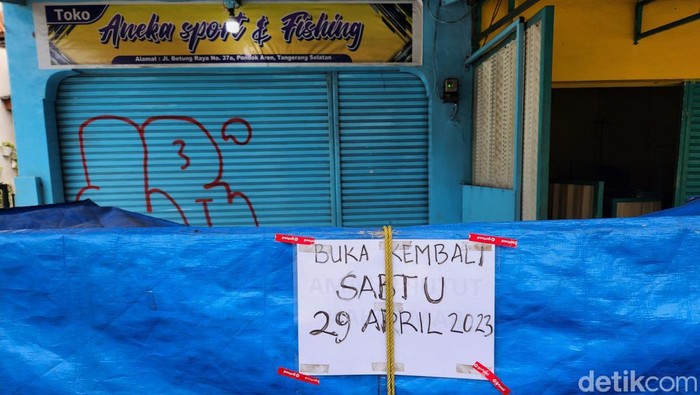 Toko
Aneka sport & Fishing
Alamat : Jl. Betung Raya No. 37a, Pondok Aren, Tangerang Selatan
3
BUKA KEMBALI
SABTU
29 APRIL 2023
detikcom